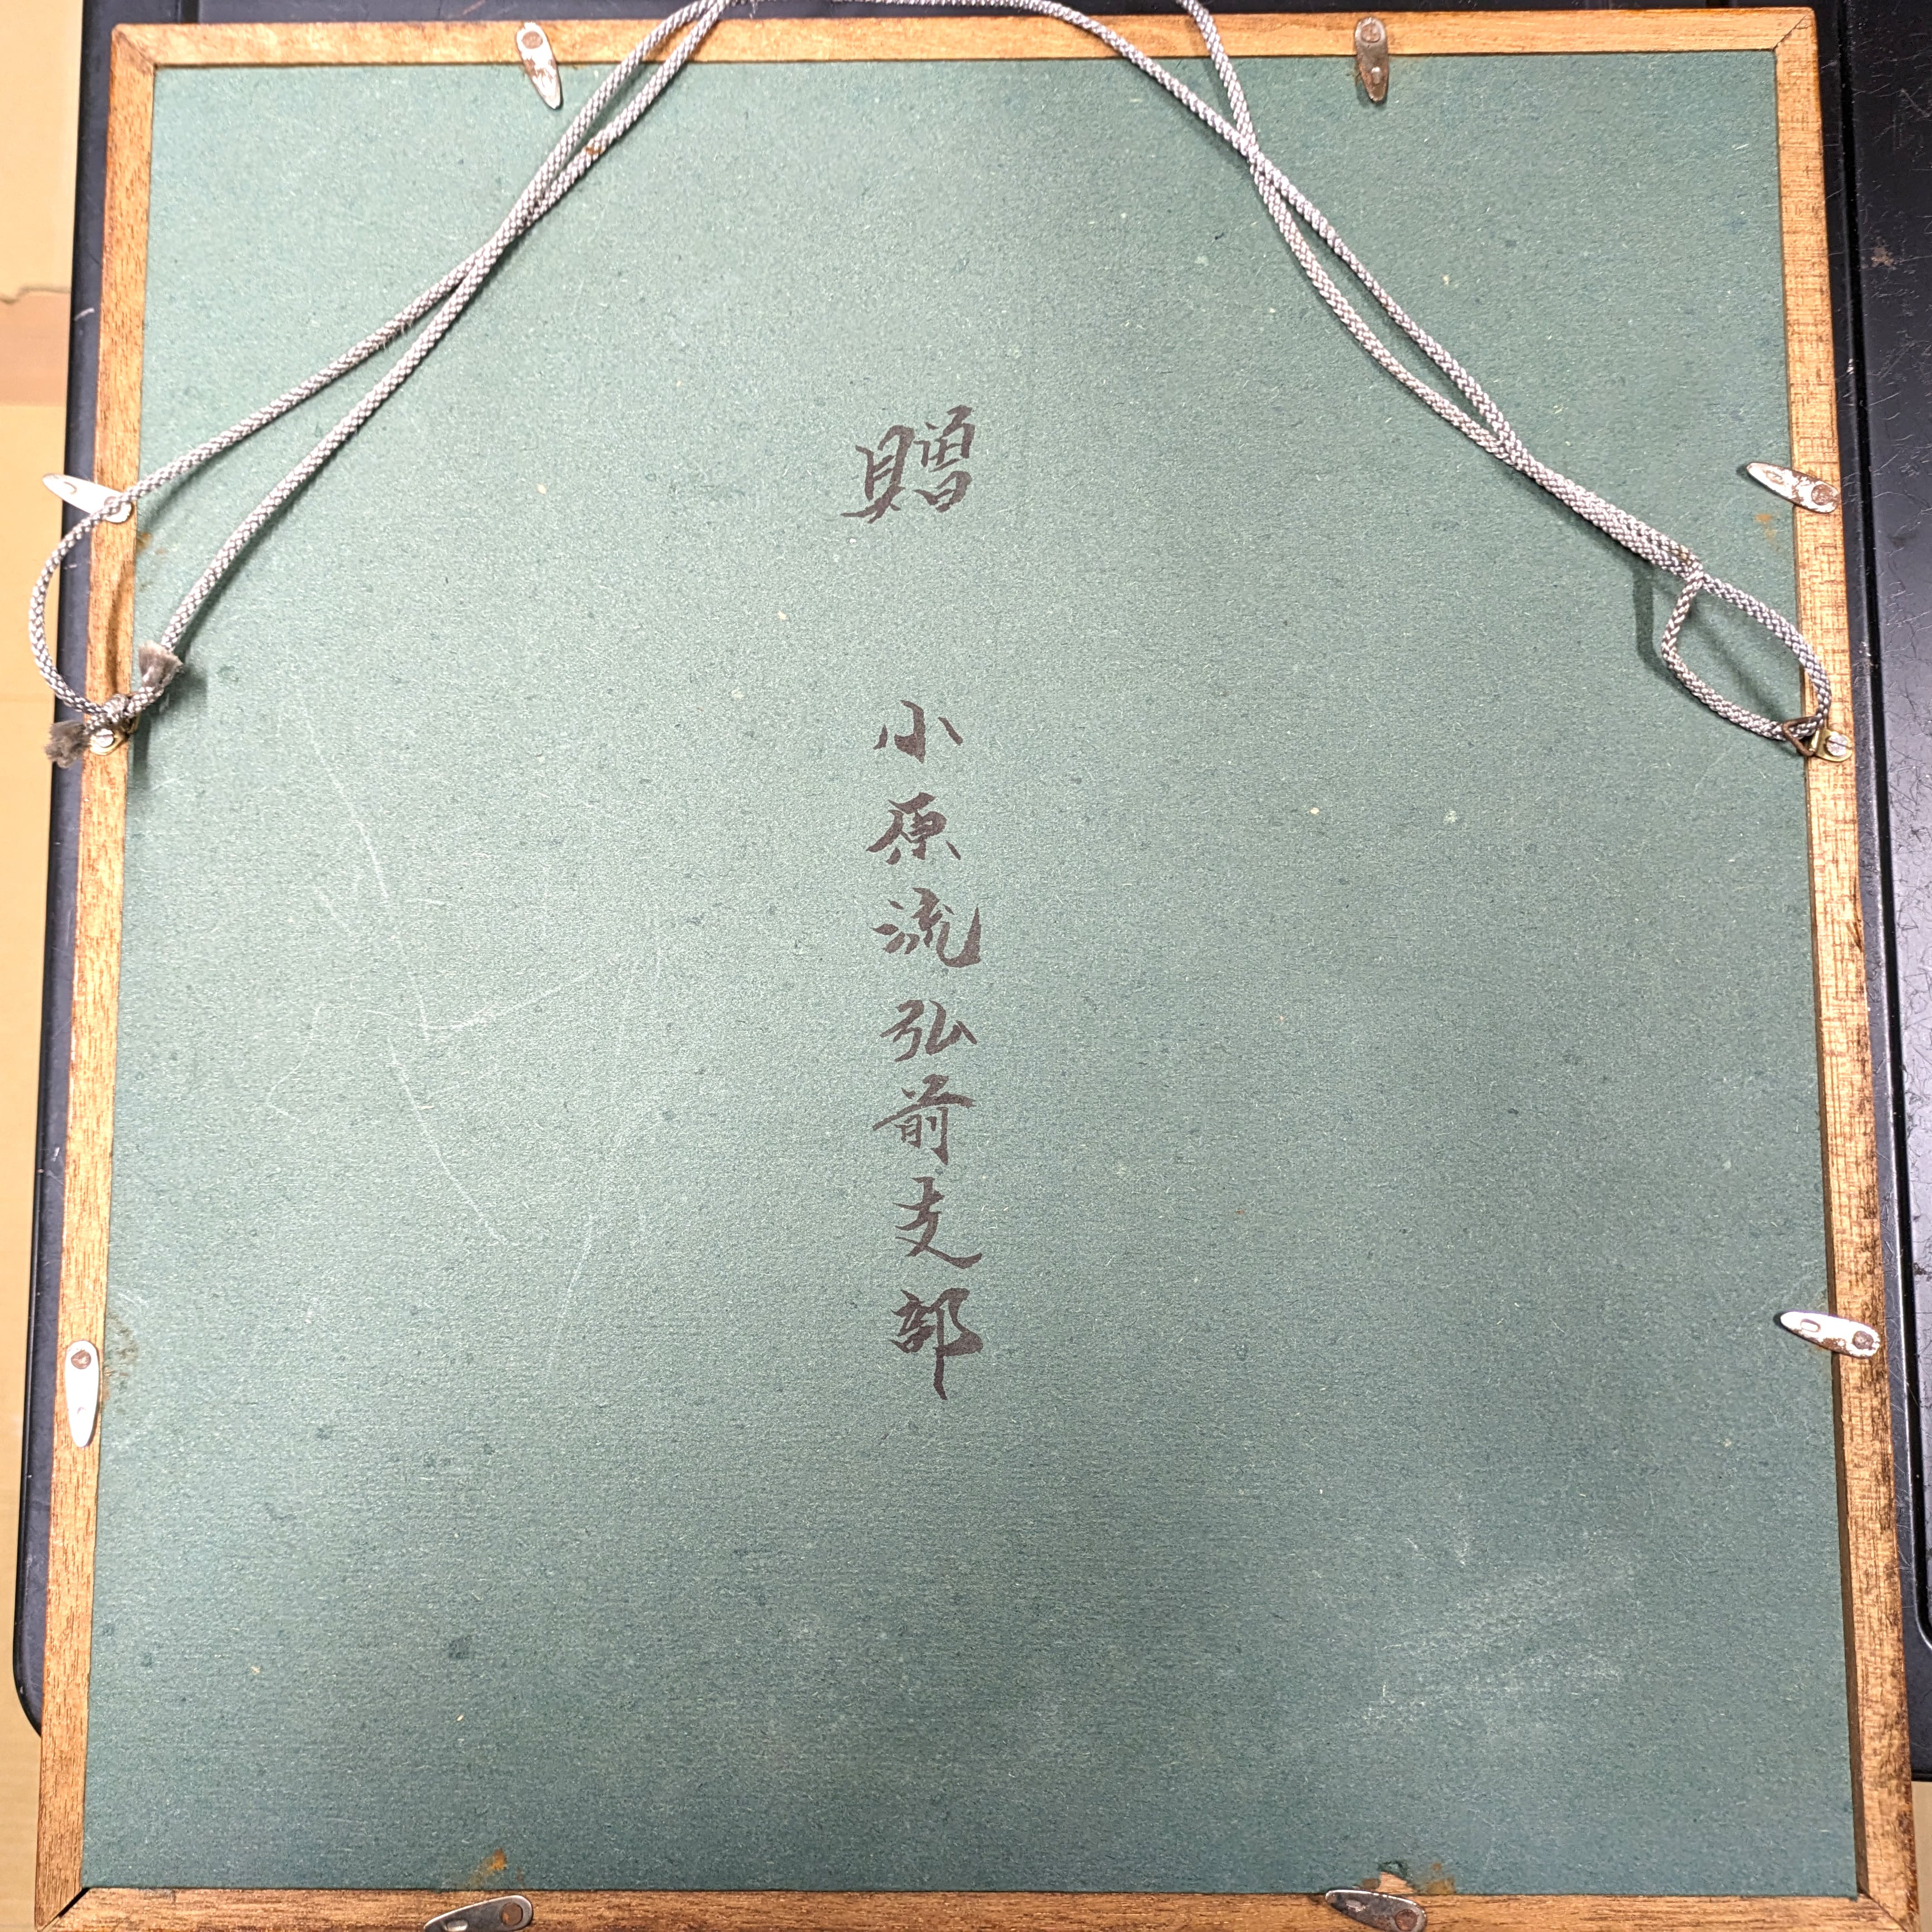 贈
小原流弘前支部